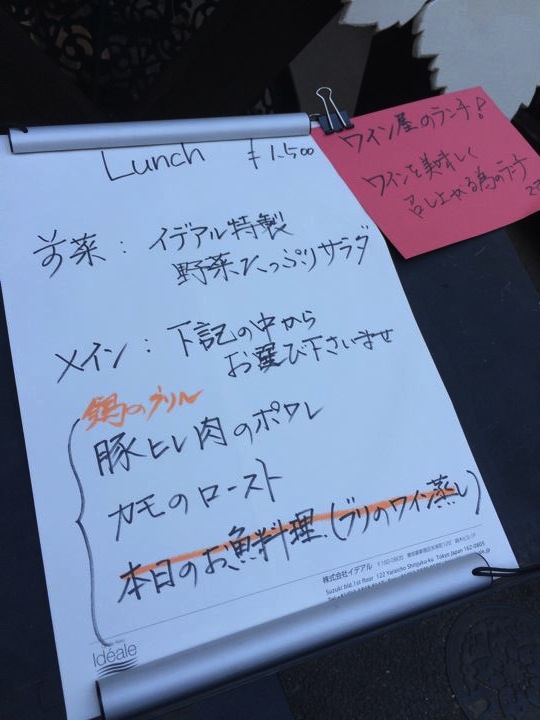 Lunch ¥1,500
ワイン屋のランチ!
ワインを美味しく
召し上がる為のランチ
前菜: イデアル特製
野菜たっぷりサラダ
メイン: 下記の中から
お選び下さいませ
鶏のグリル
豚ヒレ肉のポワレ
カモのロースト
本日のお魚料理(ブリのワイン蒸し)
株式会社イデアル
Suzuki bld,1st floor 122 Yaraicho Shinjuku-ku Tokyo Japan 162-0805
Idéale